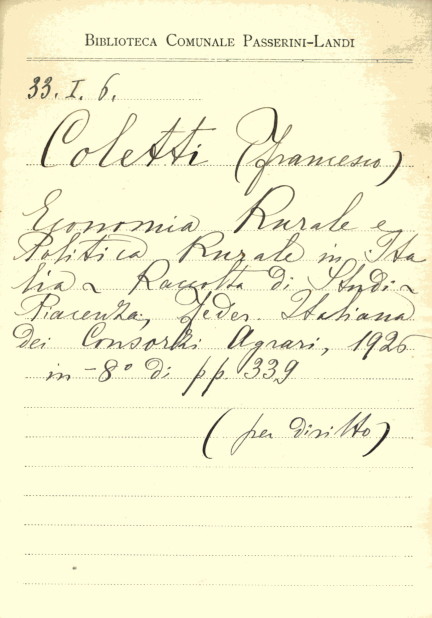 BIBLIOTECA COMUNALE PASSERINI-LANDI
33. I. 6.
Coletti (Francesco)
Economia Rurale e
Politica Rurale in Ita
lia ~ Raccolta di Studi ~
Piacenza, Feder. Italiana
dei Consorzi Agrari, 1926
in -8° di pp. 339
(per diritto)